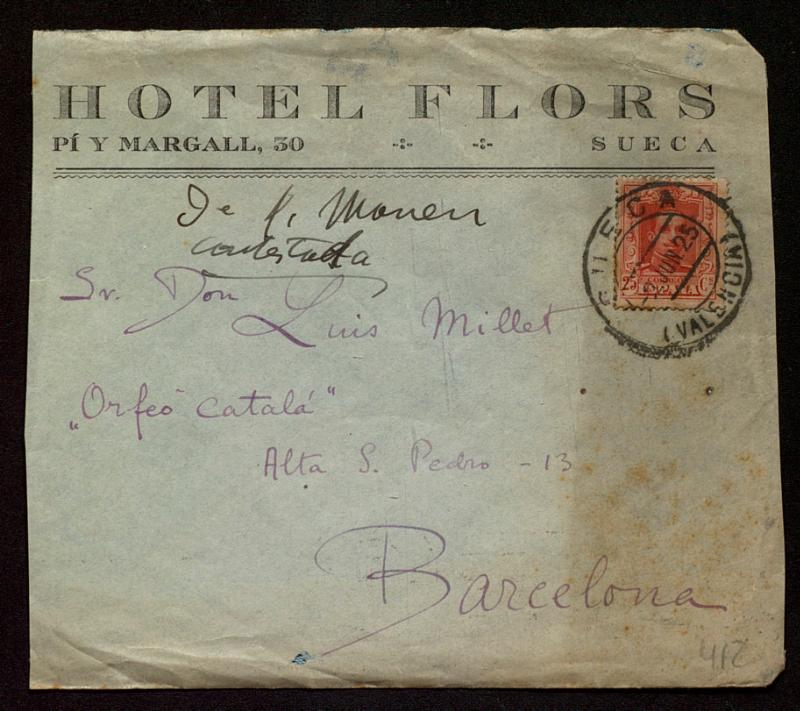 HOTEL FLORS
PÍ Y MARGALL, 30 SUECA
De
contestada
SUECA
JUN 25
(VALENCIA)
25 Cs
Sr. Don
Luis Millet
„Orfeó Catalá"
Alta S. Pedro - 13
Barcelona
412